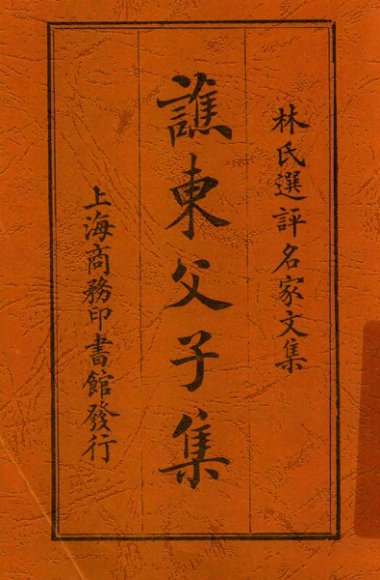 林氏選評名家文集
譙東父子集
上海商務印書館發行